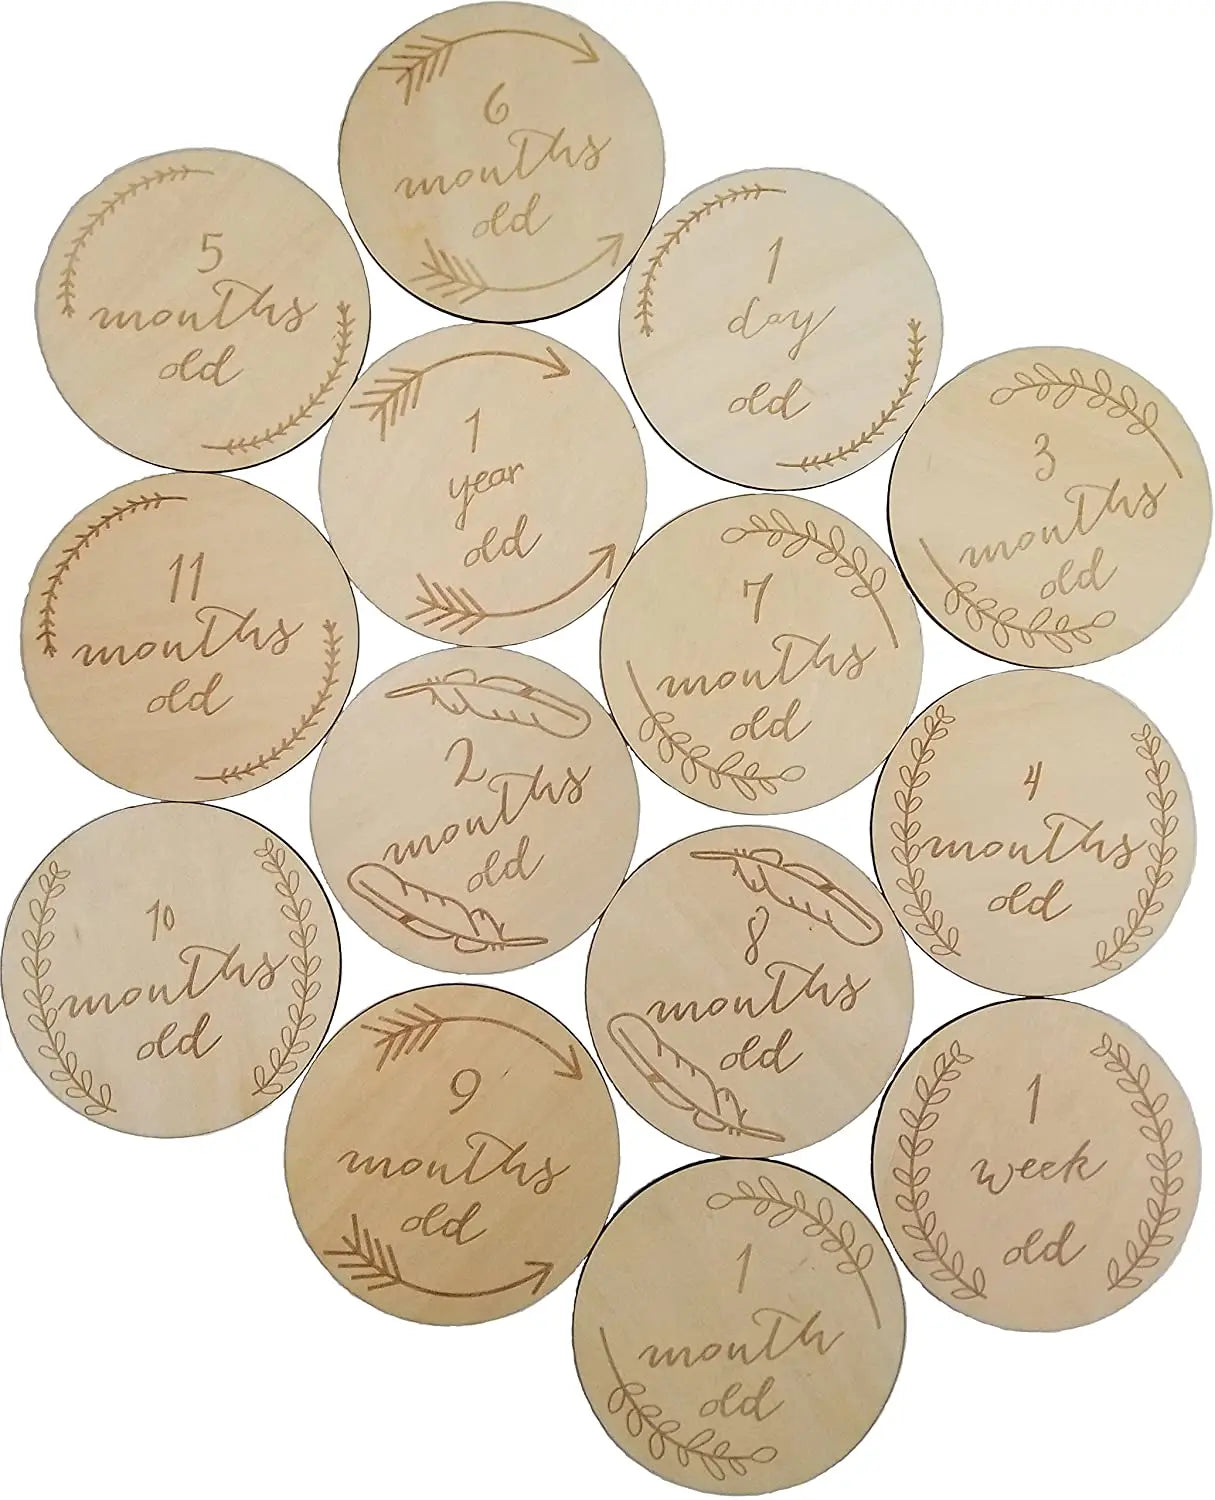 6
months
old
5
months
old
1
day
old
1
year
old
3
months
old
11
months
old
7
months
old
2
months
old
4
months
old
10
months
old
8
months
old
9
months
old
1
week
old
1
month
old